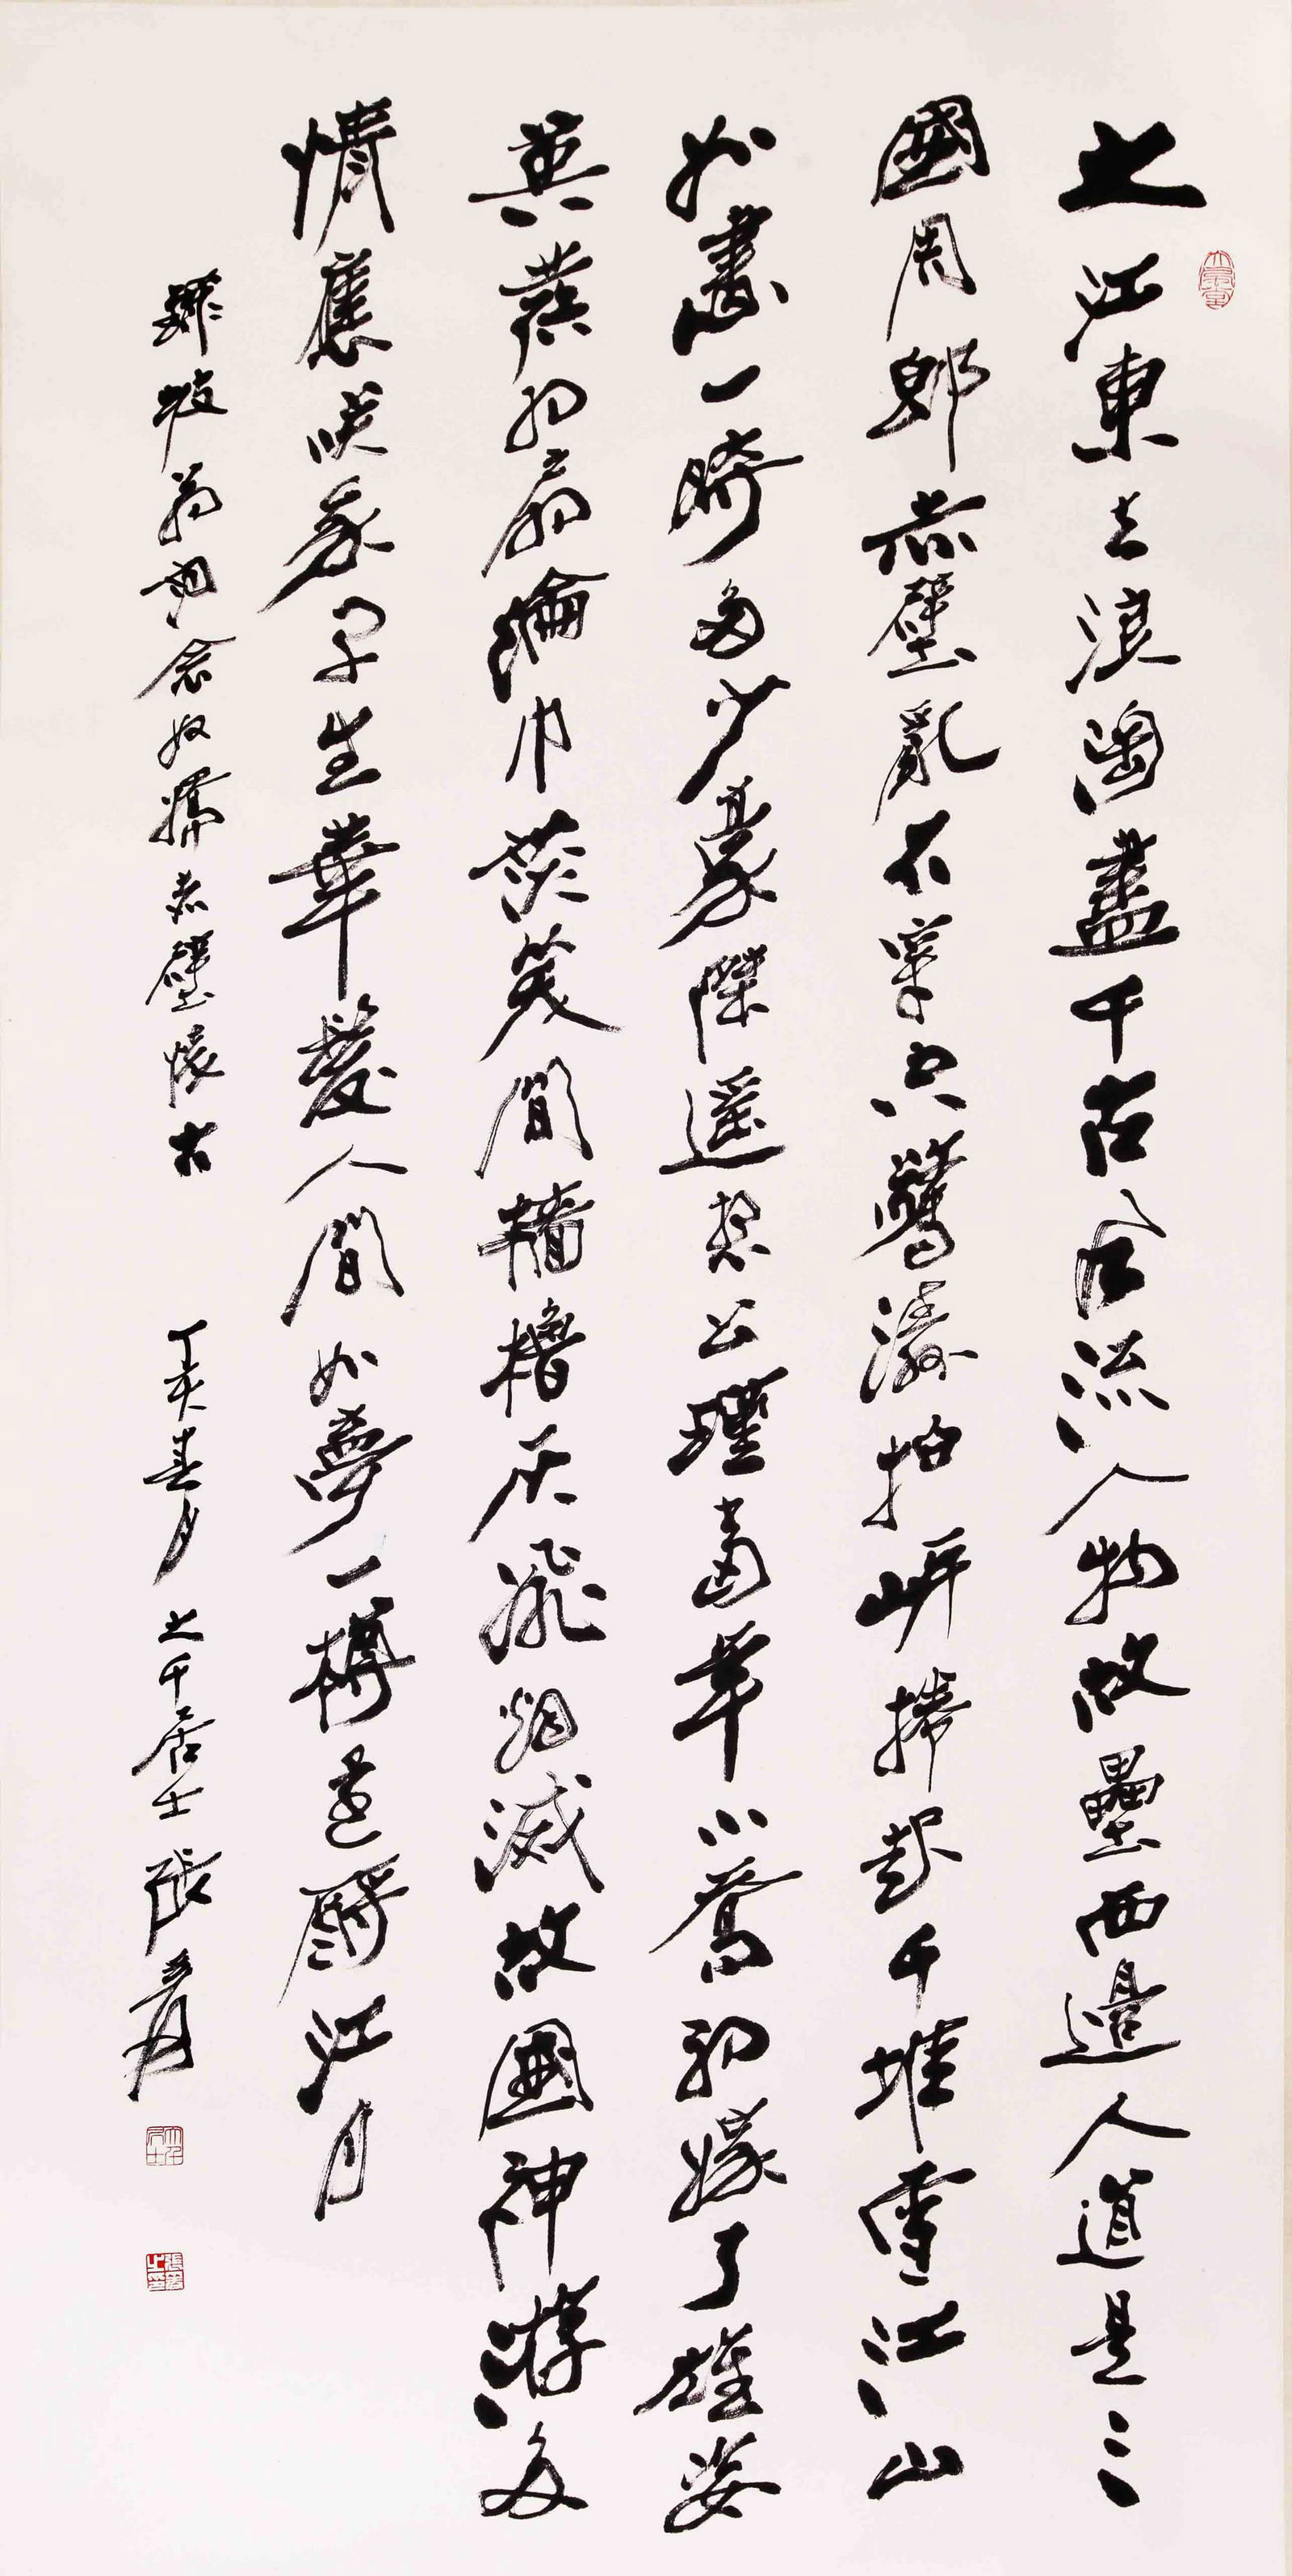 大江東去浪淘盡千古風流人物故壘西邊人道是三
國周郎赤壁亂石穿空驚濤拍岸捲起千堆雪江山
如畫一時多少豪傑遙想公瑾當年小喬初嫁了雄姿
英發羽扇綸巾談笑間檣櫓灰飛烟滅故國神游多
情應咲我早生華髮人間如夢一樽還酹江月
錄坡翁詞念奴嬌赤壁懷古 丁亥春月 大千居士張爰
大千居士
張爰之印